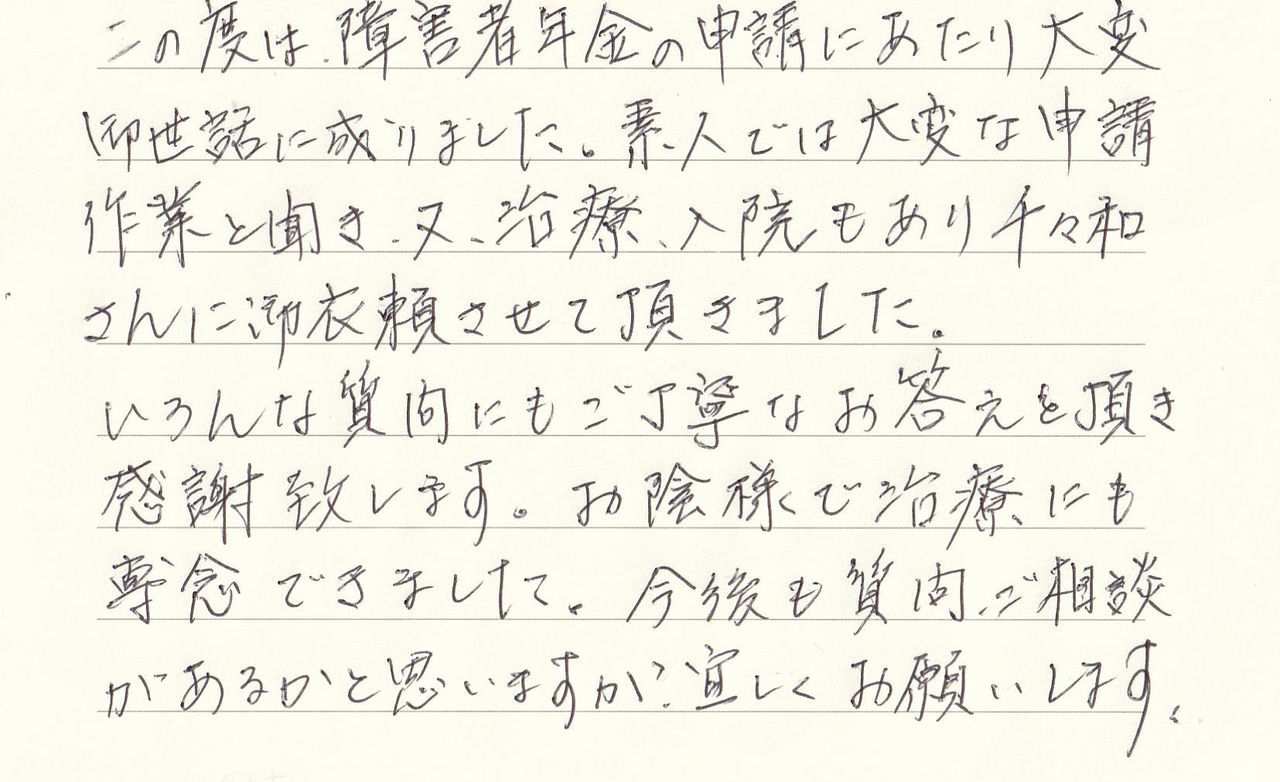 この度は、障害者年金の申請にあたり大変
御世話に成りました。素人では大変な申請
作業と聞き、又、治療、入院もあり千々和
さんに御依頼させて頂きました。
いろんな質問にもご丁寧なお答えを頂き
感謝致します。お陰様で治療にも
専念できました。今後も質問、ご相談
があるかと思いますが宜しくお願いします。